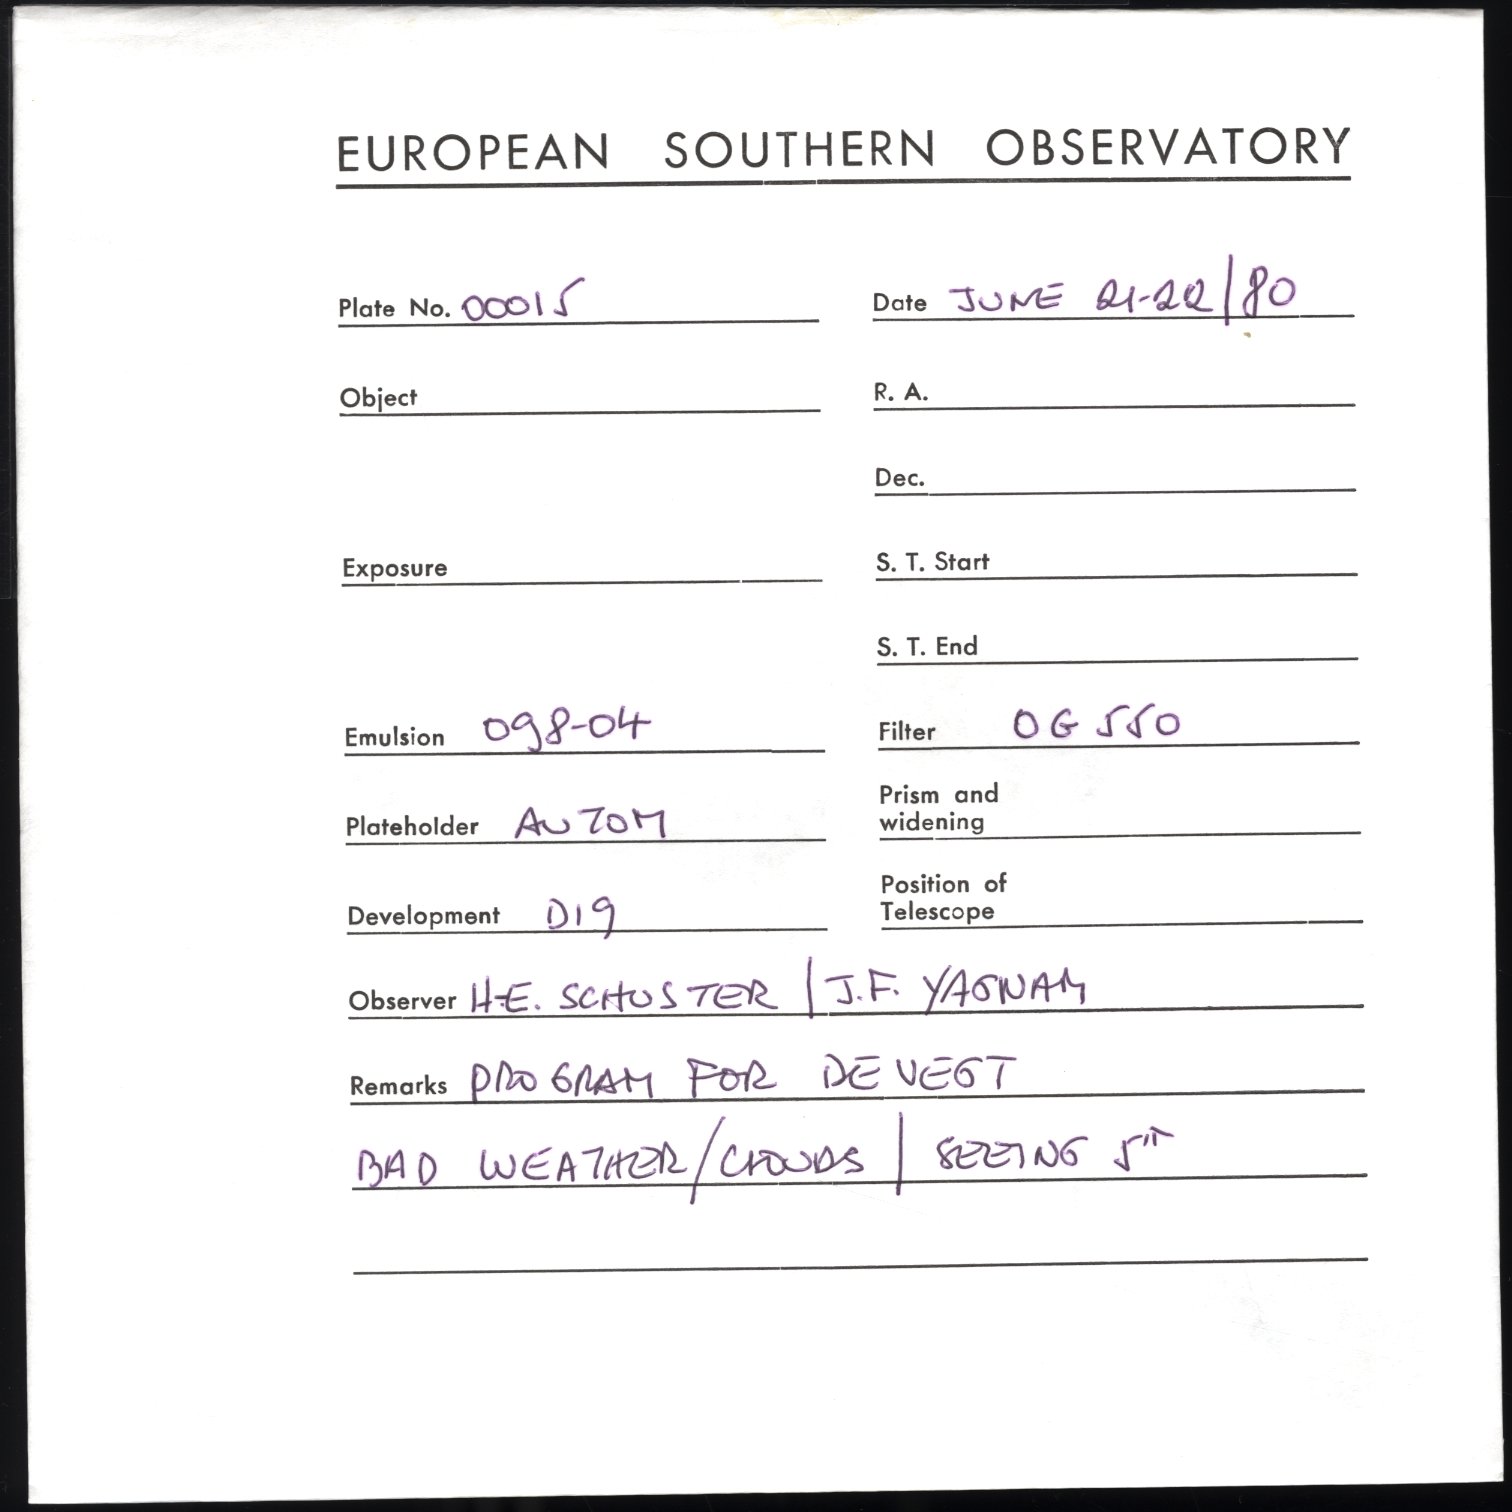 EUROPEAN SOUTHERN OBSERVATORY
Plate No. 00015 Date JUNE 21-22/80
Object R. A.
Dec.
Exposure S. T. Start
S. T. End
Emulsion 098-04 Filter OG 550
Plateholder AUTOM Prism and widening
Development D19 Position of Telescope
Observer H-E. SCHUSTER / J.F. YAGNAM
Remarks PROGRAM FOR DE VEGT
BAD WEATHER/CLOUDS / SEEING 5"